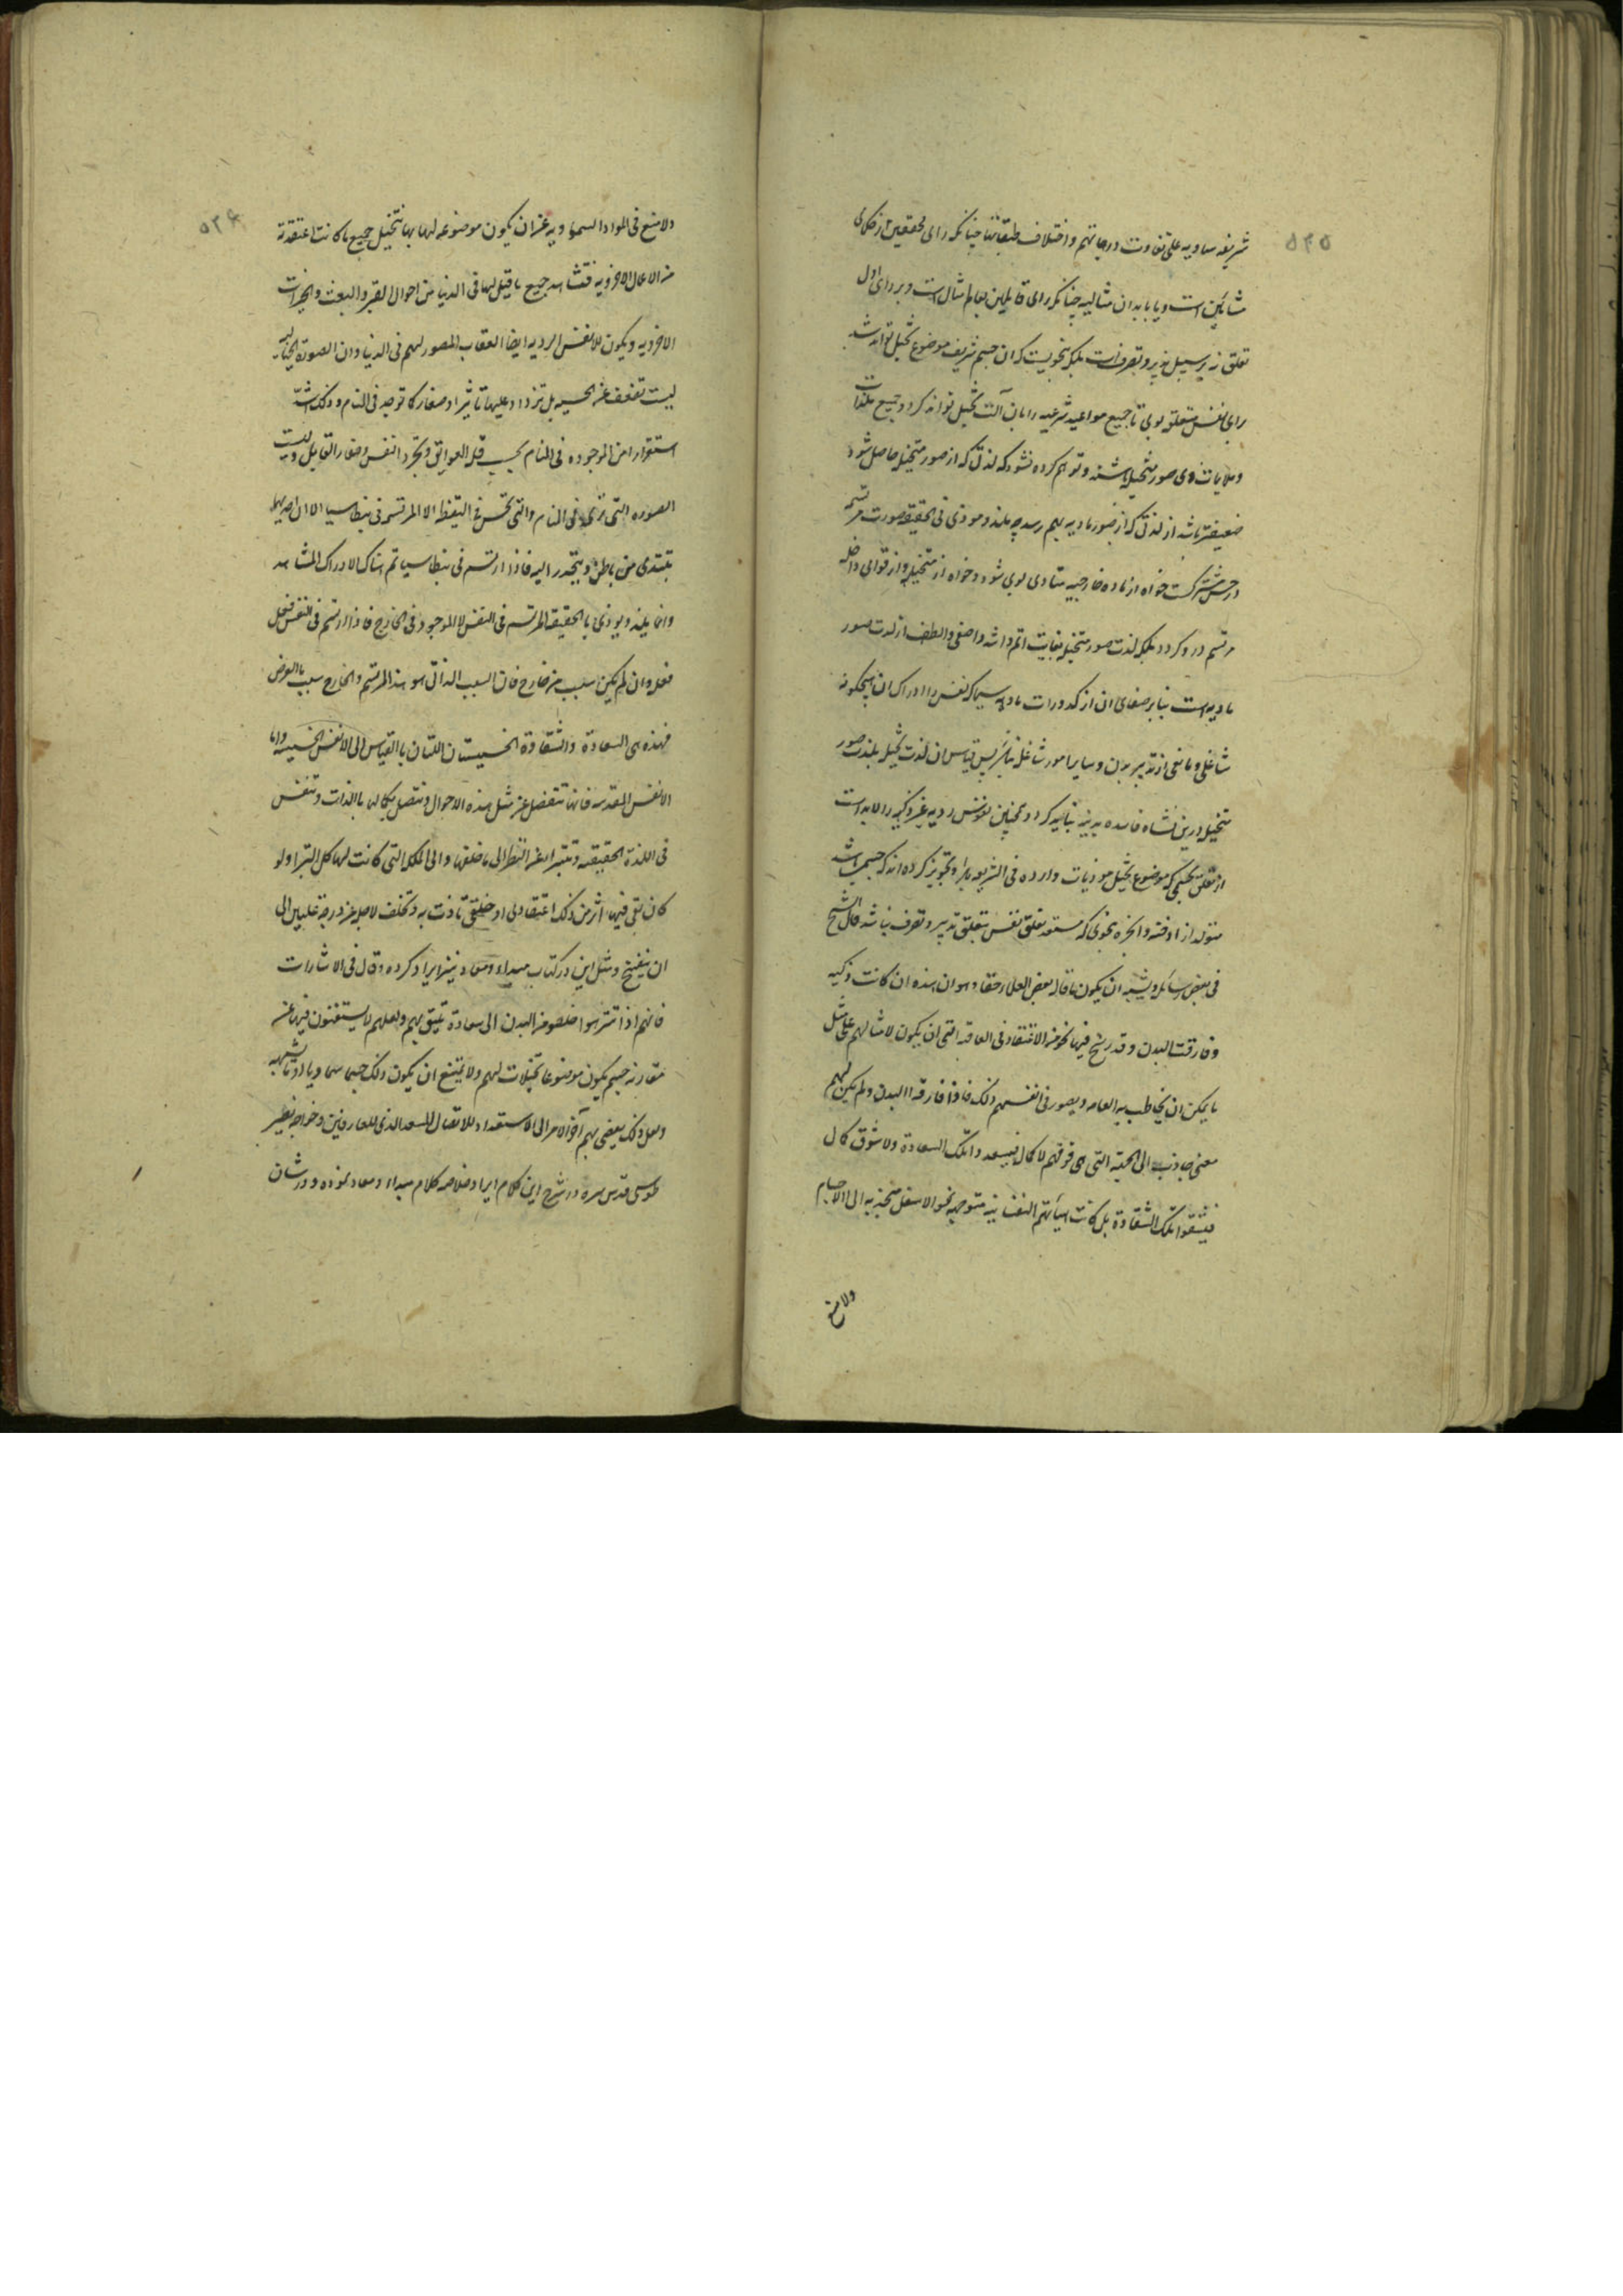 ۵۳۵
شریفه سماویه علی تفاوت درجاتهم و اختلاف طبقاتها چنانکه رای محققین از حکمای
مشائین است و یا بابدان مثالیه چنانکه رای قایلین بعالم مثال است و بر رای اول
تعلق نه بر سبیل تدبیر و تصرف است بلکه بنحویست که ان جسم شریف موضوع تخیل تواند شد
برای نفس متعلق بوی تا جمیع مواعید شرعیه را بان آلت تخیل تواند کرد و جمیع ملذات
و ملایمات وی صور متخیله باشند و توهم کرده نشود که لذتی که از صور متخیله حاصل شود
ضعیفتر باشد از لذتی که از صور مادیه بهم رسد چه ملذ و موذی فی الحقیقه صورت مرتسمه
در حس مشترکست خواه از ماده خارجیه متادی بوی شود و خواه از متخیله و از قوای داخله
مرتسم در و گردد بلکه لذت صور متخیله بغایت اتم و اشد و اصفی و الطف از لذت صور
مادیه است بنابر صفای ان از کدورات مادیه سیما که نفس را ادراک ان هیچگونه
شاغلی و مانعی از تدبیر بدن و سایر امور شاغله نباشد پس قیاس ان لذت تخیل بلذت صور
متخیل درین نشاه فاسده بدنیه نباید کرد و همچنین نفوس ردیه غیر زکیه را لابد است
از تعلق بجسمی که موضوع تخیل موذیات وارده فی الشریعه باشد و تجویز کرده اند که جسمی باشد
متولد از ادخنه و ابخره بنحوی که مستعد تعلق نفس بتعلق تدبیر و تصرف نباشد قال الشیخ
فی بعض رسائله و یشبه ان یکون ما قاله بعض العلماء حقا و هو ان هذه ان کانت زکیه
و فارقت البدن و قد رسخ فیها نحو من الاعتقاد فی العاقبه التی ان یکون لامثالهم علی مثل
ما یمکن ان یخاطب به العامه و یصور فی انفسهم ذلک فاذا فارقوا البدن و لم یکن لهم
معنی جاذب الی الجهه التی هی فوقهم لا کمال فیسعدوا تلک السعادة و لا شوق کمال
فیشقوا تلک الشقاوة بل کانت هیأتهم النفسانیه متوجهه نحو الاسفل منجذبه الی الاجسام
ولا منع
۵۳۶
ولا منع فی المواد السماویه عن ان یکون موضوعه لها بها تتخیل جمیع ما کانت اعتقدته
من الاحوال الاخرویه فتشاهد جمیع ما قیل لها فی الدنیا من احوال القبر و البعث و الخیرات
الاخرویه و یکون للانفس الردیه ایضا العقاب المصور لهم فی الدنیا و ان الصورة الخیالیه
لیست تضعف عن الحسیه بل تزداد علیها تاثیرا و صفاء کما توجد فی المنام و ذلک اشد
استقرارا من الموجوده فی المنام بحسب قلة العوایق و تجرد النفس و صفاء القابل و لیست
الصوره التی تری فی المنام و التی تحس فی الیقظه الا المرتسمه فی بنطاسیا الا ان احدیهما
تبتدی من باطن و ینحدر الیه فاذا ارتسم فی بنطاسیا تم هناک الادراک المشاهد
و انما یلذ و یوذی بالحقیقه المرتسم فی النفس لا الموجود فی الخارج فاذا ارتسم فی النفس فعل
فعله و ان لم یکن بسبب من خارج فان السبب الذاتی هو هذا المرتسم و الخارج سبب بالعرض
فهذه هی السعادة و الشقاوة الخسیستان اللتان بالقیاس الی الانفس الخسیسه و اما
الانفس المقدسه فانها تنفصل عن مثل هذه الاحوال و تتصل بکمالها بالذات و تنغمس
فی اللذة الحقیقیه و تتبرا عن النظر الی ما خلفها و الی المملکة التی کانت لها کل التبرا و لو
کان بقی فیها اثر من ذلک اعتقادی او خلقی تاذت به و تخلفت لاجله عن درجة علیین الی
ان ینفسخ و مثل این در کتاب مبداء و معاد نیز ایراد کرده و قال فی الاشارات
فانهم اذا تنزهوا خلصوا من البدن الی سعادة تلیق بهم و لعلهم لا یستغنون فیها عن
مقارنه جسم یکون موضوعا لتخیلات لهم و لا یمتنع ان یکون ذلک جسما سماویا او ما یشبهه
و لعل ذلک یفضی بهم آخر الامر الی الاستعداد للاتصال المسعد الذی للعارفین و خواجه نصیر
طوسی قدس سره در شرح این کلام ایراد خلاصه کلام مبداء و معاد نموده و در شان